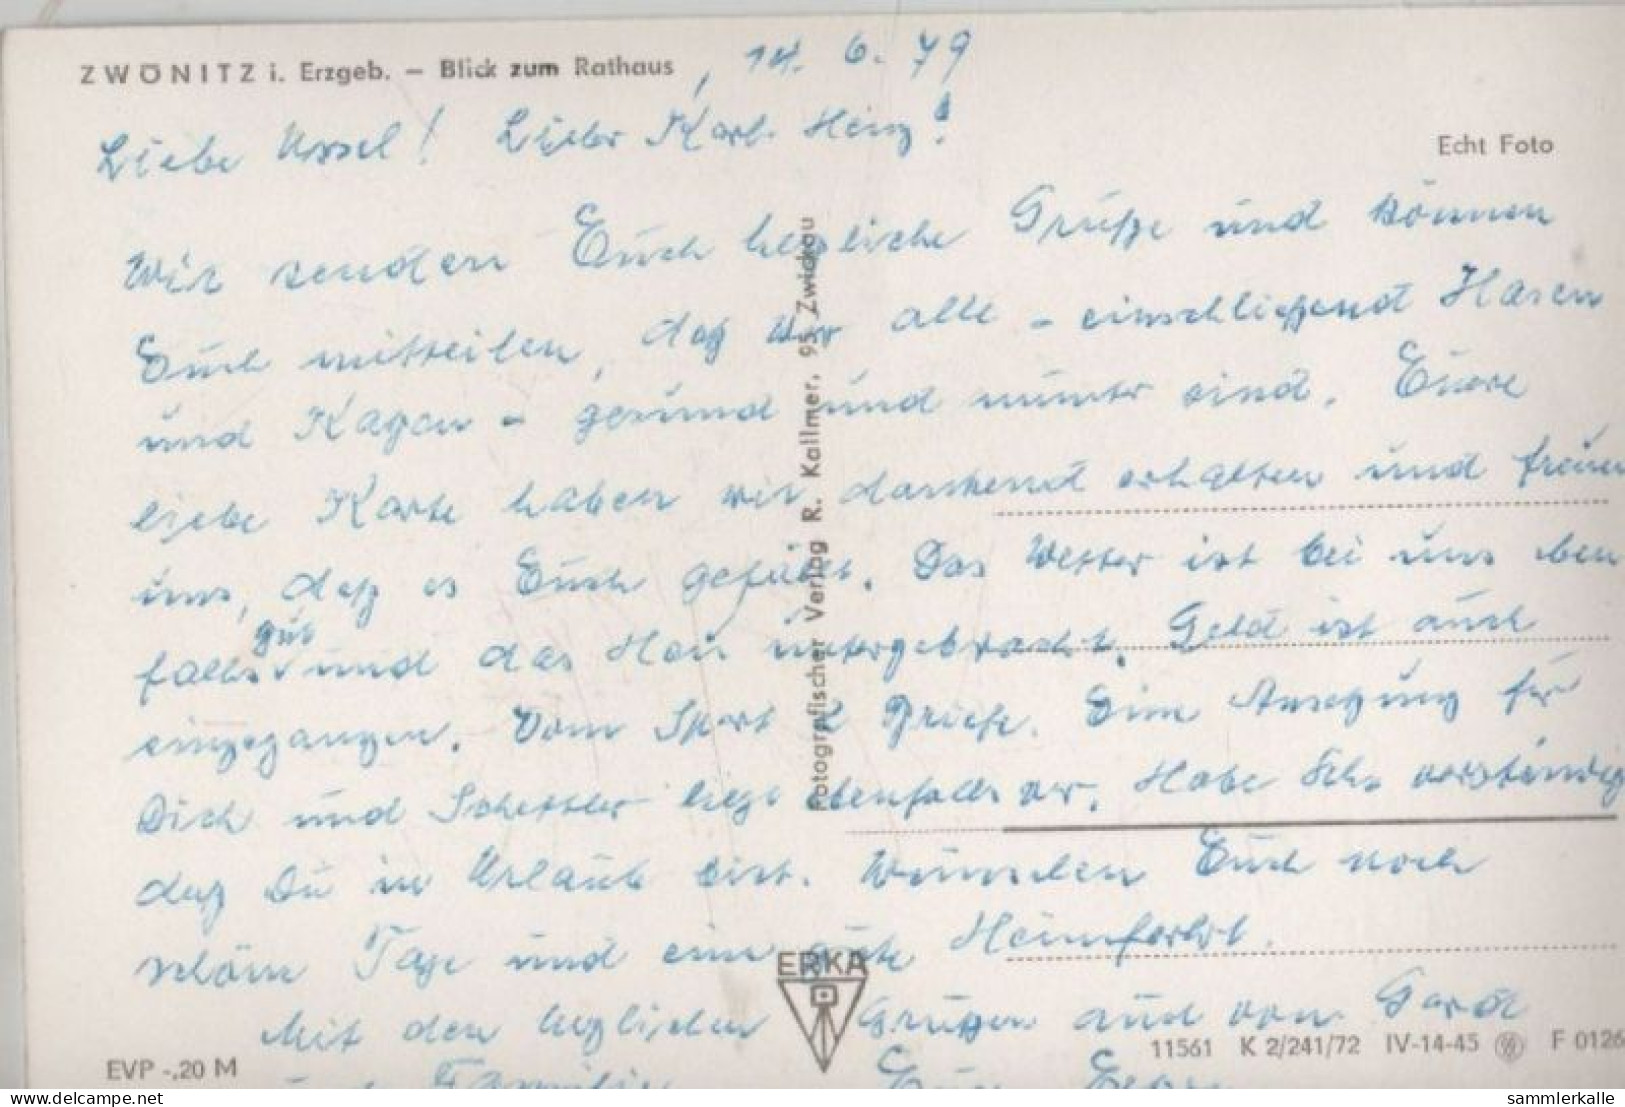 ZWÖNITZ i. Erzgeb. – Blick zum Rathaus
, 14. 6. 79
Echt Foto
Liebe Ursel! Lieber Karl-Heinz!
Wir senden Euch herzliche Grüße und können
Euch mitteilen, daß wir alle - einschließend Hasen
und Katzen - gesund und munter sind. Euere
liebe Karte haben wir dankend erhalten und freuen
uns, daß es Euch gefällt. Das Wetter ist bei uns eben
falls gut und das Heu untergebracht. Geld ist auch
eingegangen. Vom Sport 2 Briefe. Eine für
Dich und liegt ebenfalls vor. Habe Sch. verständigt
daß Du in Urlaub bist. Wünschen Euch noch
schöne Tage und eine gute Heimfahrt.
Mit den herzlichen Grüßen auch von Gerda
Familie Eure Eltern
Fotografischer Verlag R. Kallmer, 95 Zwickau
ERKA
EVP -,20 M
11561 K 2/241/72 IV-14-45 F 0126
delcampe.net
sammlerkalle